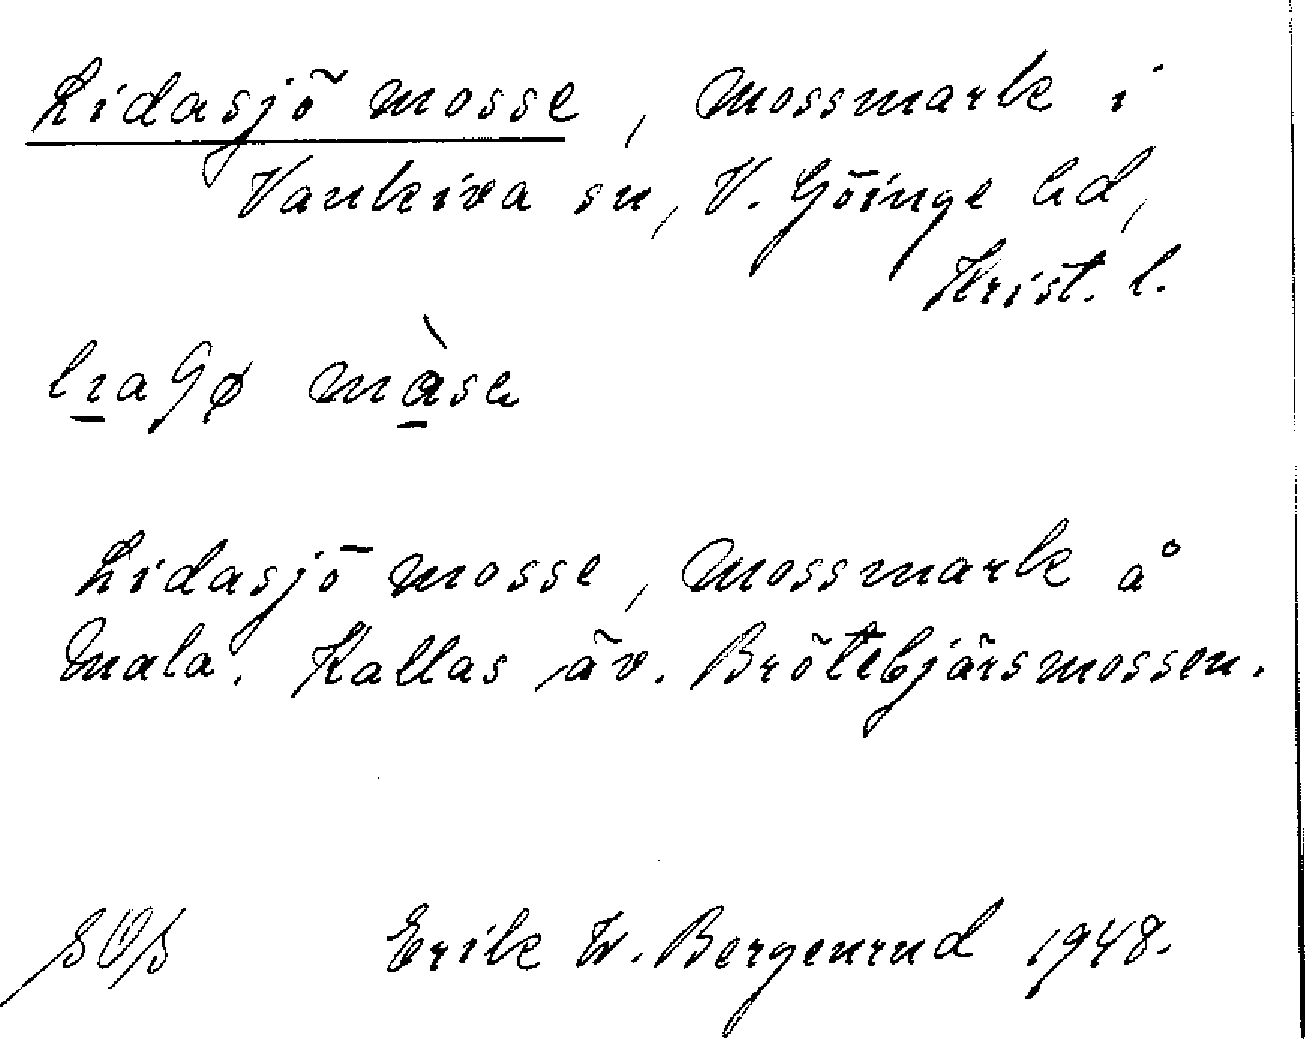 Lidasjö mosse, Mossmark i
Vankiva sn, V. Göinge hd,
Krist. l.
Lidasjö mosse, Mossmark å
Mala. Kallas äv. Brötebjärsmossen.
Erik W. Bergenrud 1948.